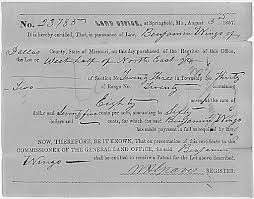 No. 23785 LAND OFFICE, at Springfield, Mo., August 1857.
It is hereby certified, That in pursuance of Law, Benjamin Wingo of
Dallas County, State of Missouri, on this day purchased of the Register of this Office,
the Lot or West half of North East
of Section Twenty Three in Township Thirty
Two of Range No. Twenty containing
Eighty
dollars and Twenty five cents per acre, amounting to Sixty
dollars and cents, for which the said Benjamin Wingo
has made payment in full as required by law.
NOW, THEREFORE, BE IT KNOWN, That on presentation of this certificate to the
COMMISSIONER OF THE GENERAL LAND OFFICE, the said Benjamin
Wingo shall be entitled to receive a Patent for the Lot above described.
REGISTER.